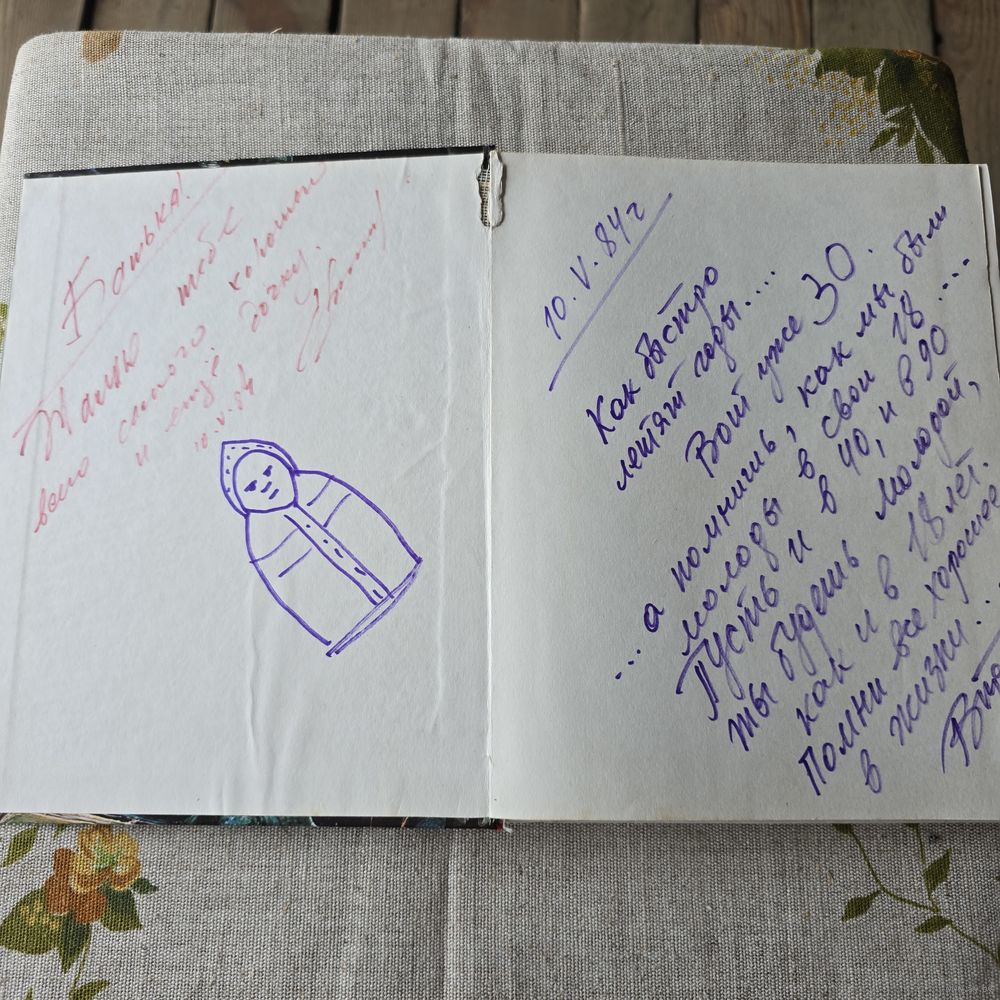 Банька!
Желаю тебе
всего самого хорошого
и ещё дочку.
10.V.84
10.V.84 г
Как быстро
летят годы....
Вот уже 30.
...а помнишь, как мы были
молоды в свои 18....
Пусть и в 40, и в 90
ты будешь молодой,
как и в 18 лет.
Помни все хорошее
в жизни...